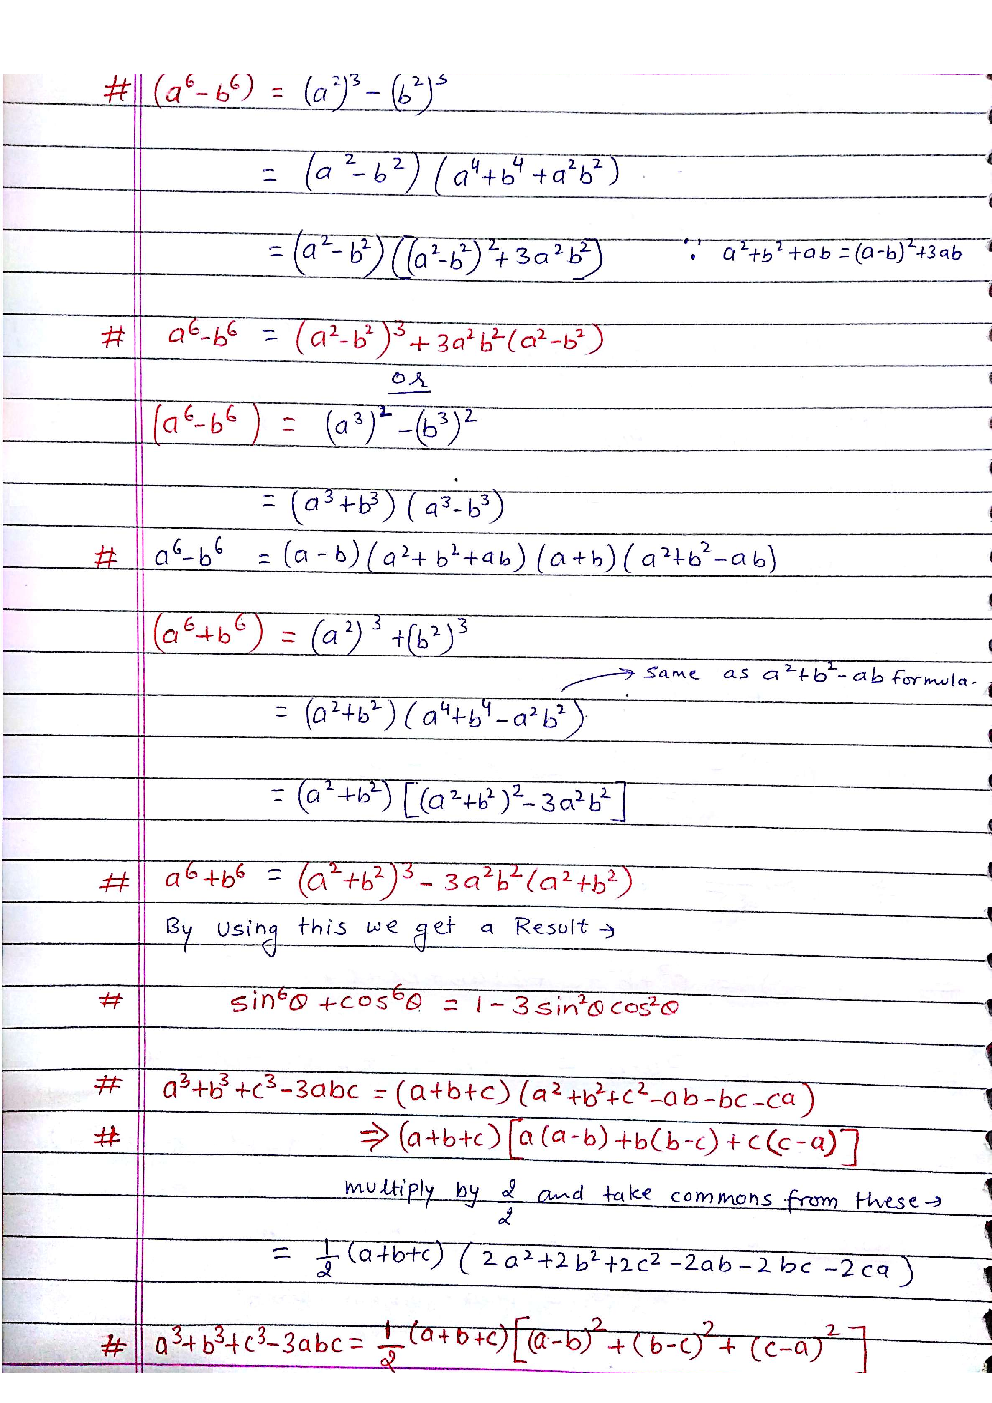 # (a⁶-b⁶) = (a²)³ - (b²)³
= (a²-b²) (a⁴+b⁴+a²b²)
= (a²-b²) ((a²-b²)²+3a²b²) ∵ a²+b²+ab = (a-b)²+3ab
# a⁶-b⁶ = (a²-b²)³+3a²b²(a²-b²)
or
(a⁶-b⁶) = (a³)² - (b³)²
= (a³+b³) (a³-b³)
# a⁶-b⁶ = (a-b) (a²+b²+ab) (a+b) (a²+b²-ab)
(a⁶+b⁶) = (a²)³ +(b²)³
→ same as a²+b²-ab formula.
= (a²+b²) (a⁴+b⁴-a²b²)
= (a²+b²) [(a²+b²)²-3a²b²]
# a⁶+b⁶ = (a²+b²)³ - 3a²b²(a²+b²)
By using this we get a Result →
# sin⁶θ +cos⁶θ = 1-3sin²θcos²θ
# a³+b³+c³-3abc = (a+b+c) (a²+b²+c²-ab-bc-ca)
# ⇒ (a+b+c) [a(a-b)+b(b-c)+c(c-a)]
multiply by 2/2 and take commons from these →
= 1/2 (a+b+c) (2a²+2b²+2c²-2ab-2bc-2ca)
# a³+b³+c³-3abc = 1/2 (a+b+c) [(a-b)²+(b-c)²+(c-a)²]